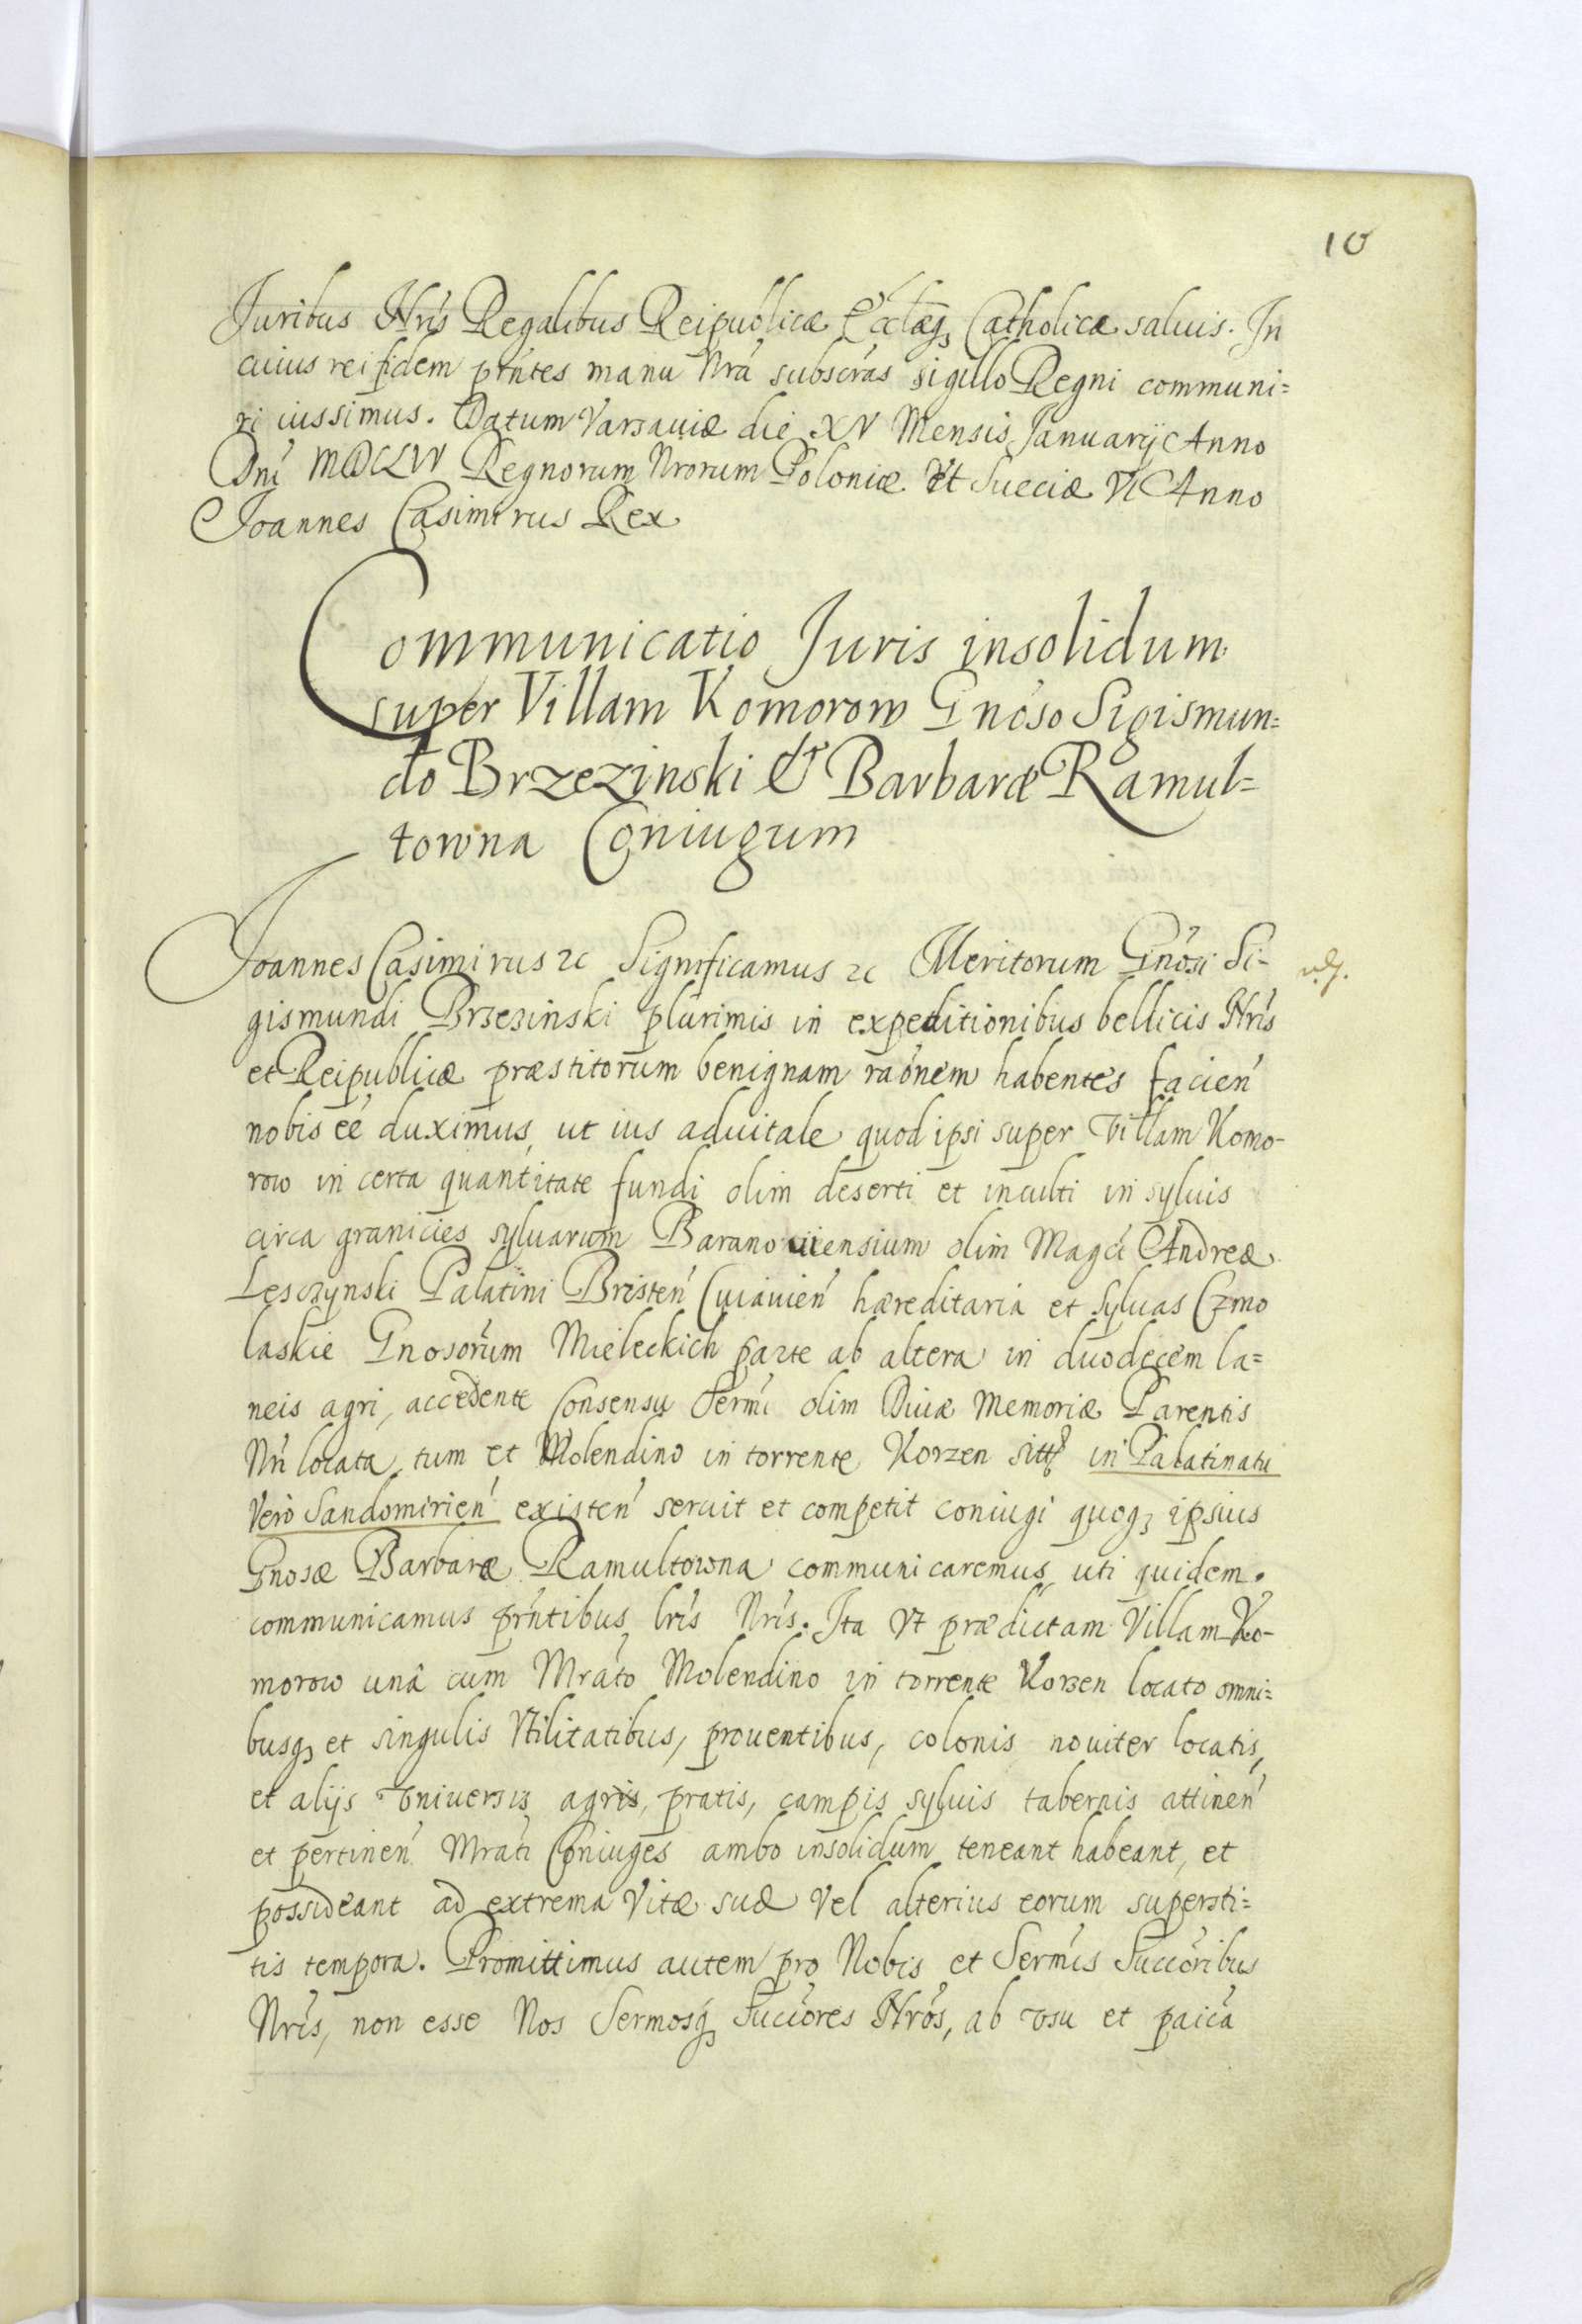 10
Juribus Nris Regalibus Reipublicæ Ecclæq, Catholicæ saluis. In
cuius rei fidem prntes manu Nra subscras sigillo Regni communi=
ri iussimus. Datum Varsauiæ die XV Mensis Januarij Anno
Dni MDCLIV Regnorum Nrorum Poloniæ Et Sueciæ VI Anno
Joannes Casimirus Rex
Communicatio Juris insolidum
super Villam Komorow Gnoso Sigismun=
do Brzezinski & Barbaræ Ramul=
towna Coniugum
Joannes Casimirus ꝛc Significamus ꝛc Meritorum Gnosi Si-
gismundi Brzezinski plurimis in expeditionibus bellicis Nris
et Reipublicæ præstitorum benignam raonem habentes facien
nobis ee duximus, ut ius aduitale quod ipsi super Villam Komo-
row in certa quantitate fundi olim deserti et inculti in syluis
circa granicies syluarum Baranouiensium olim Magci Andreæ
Lesczynski Palatini Bresten Cuiauien hæreditaria et Syluas Czmo
laskie Gnosorum Mieleckich parte ab altera in duodecem la=
neis agri, accedente Consensu Sermi olim Diuæ Memoriæ Parentis
Nri locata, tum et Molendino in torrente Korzen sitt in Palatinatu
Vero Sandomirien existen seruit et competit coniugi quoq, ipsius
Gnosæ Barbaræ Ramultowna communicaremus, uti quidem.
communicamus prntibus lris Nris. Ita Vt prædictam Villam Ko-
morow unâ cum Mrato Molendino in torrente Korzen locato omni=
busq, et singulis Vtilitatibus, prouentibus, colonis nouiter locatis,
et alijs vniuersis agris, pratis, campis syluis tabernis attinen
et pertinen Mrati Coniuges ambo insolidum teneant habeant, et
possideant ad extrema Vitæ suæ Vel alterius eorum supersti=
tis tempora. Promittimus autem pro Nobis et Sermis Succoribus
Nris, non esse Nos Sermosq, Succores Nros, ab vsu et paica